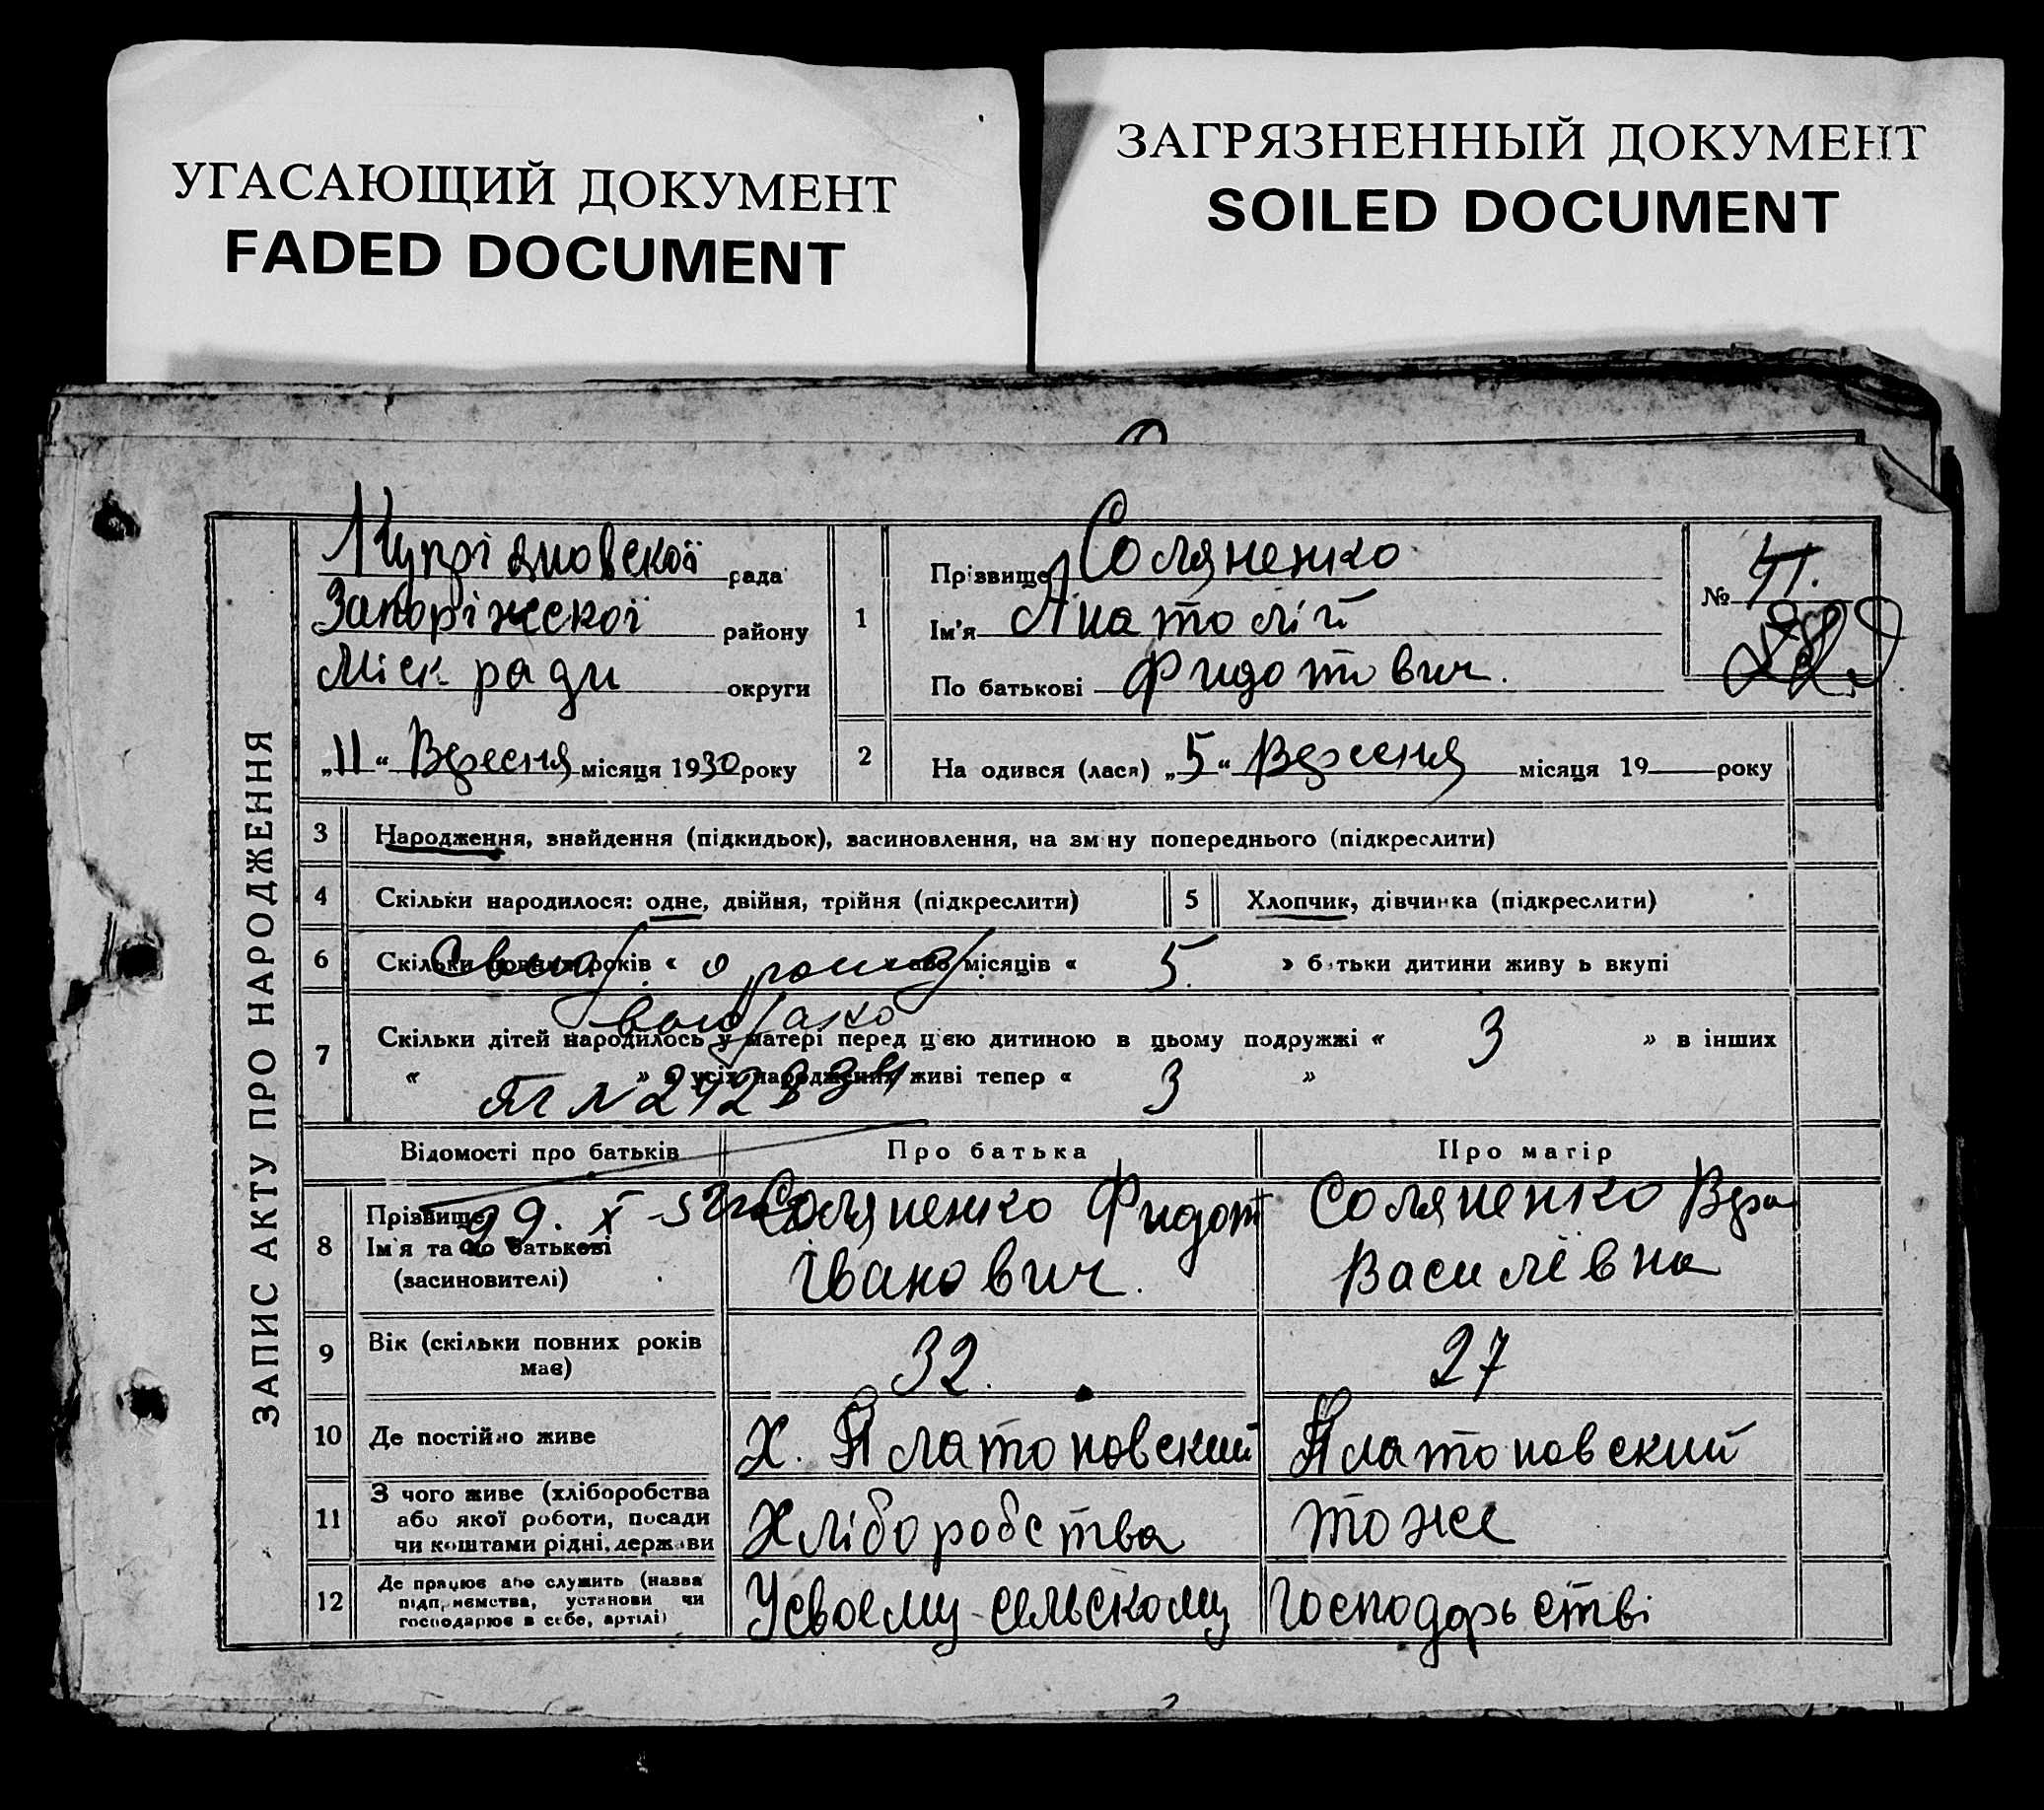 УГАСАЮЩИЙ ДОКУМЕНТ
FADED DOCUMENT
ЗАГРЯЗНЕННЫЙ ДОКУМЕНТ
SOILED DOCUMENT
ЗАПИС АКТУ ПРО НАРОДЖЕННЯ
Купріяновскої рада
Запоріжскої району
Міск ради округи
„11“ Вересня місяця 1930 року
1
Прізвище Соляненко
Ім'я Анатолій
По батькові Фидотович.
№ 41.
2 На одився (лася) „5“ Вересня місяця 19 року
3 Народження, знайдення (підкидьок), засиновлення, на зм ну попереднього (підкреслити)
4 Скільки народилося: одне, двійня, трійня (підкреслити)
5 Хлопчик, дівчинка (підкреслити)
6 Скільки повних років « або місяців « 5. » батьки дитини живу ь вкупі
7 Скільки дітей народилось у матері перед цією дитиною в цьому подружжі « 3 » в інших
« » з усіх народжених живі тепер « 3 »
Відомості про батьків Про батька Про матір
8 Прізвище
Ім'я та по батькові
(засиновителі)
Соляненко Фидот
Іванович.
Соляненко Вера
Василєвна
9 Вік (скільки повних років
має)
32. 27
10 Де постійно живе Х. Платоновский Платоновский
11 З чого живе (хліборобства
або якої роботи, посади
чи коштами рідні, держави
Хліборобства тоже
12 Де працює або служить (назва
підприємства, установи чи
господарює в себе, артілі)
Усвоему-сельскому господарьстві